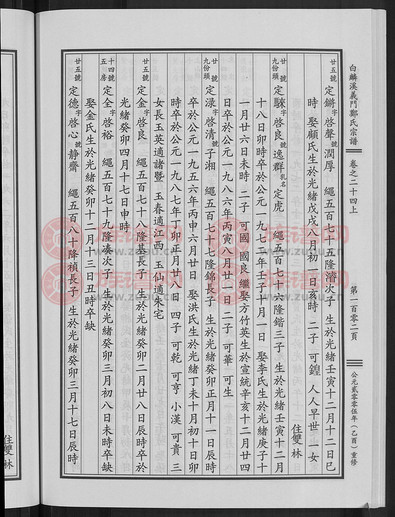 白麟溪義門鄭氏宗譜
卷之二十四上
第一百零二頁
公元貳零零伍年(乙酉)重修
廿五號 定鏘字啓聲號潤厚 繩五百七十五隆澘次子 生於光緒壬寅十二月十二日巳
時 娶顧氏生於光緒戊戌八月初一日亥時 二子 可鍠 人人早世 一女
住雙林
廿號九份頭 定騋字啓良號逸群乳名定虎 繩五百七十六隆鍇三子 生於光緒壬寅十二月
十八日卯時卒於公元一九七二年壬子十月一日 娶李氏生於光緒庚子十
一月廿六日未時 二子 可國 國良 繼娶方竹英生於宣統辛亥十二月廿四
日卒於公元一九八六年丙寅八月廿一日 二子 可華 可生
廿號九份頭 定淥字啓清號子湘 繩五百七十七隆錦長子 生於光緒癸卯正月十一日辰時
卒於公元一九五六年丙申六月廿日 娶洪氏生於光緒丁未十月初十日卯
時卒於公元一九八七年丁卯正月廿八日 四子 可乾 可亨 小漢 可貴 三
女長玉英適諸暨 玉春適江西 玉仙適朱宅
廿五號 定金字啓良 繩五百七十八隆基長子 生於光緒癸卯二月廿八日辰時卒於
光緒癸卯四月十七日申時
十四號五房 定全字啓裕 繩五百七十九隆湊次子 生於光緒癸卯三月初八日未時卒缺
娶金氏生於光緒癸卯十二月十三日丑時卒缺
廿五號 定德字啓心號靜齋 繩五百八十降楨長子 生於光緒癸卯三月十七日辰時
住雙林